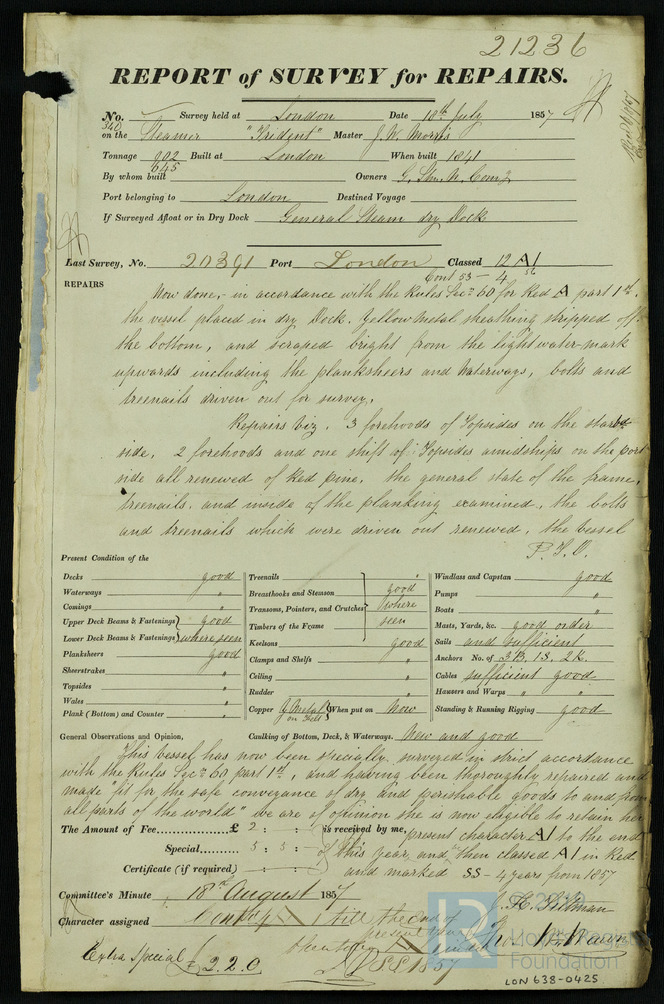 21236
REPORT of SURVEY for REPAIRS.
No. 340 Survey held at London Date 10th July 1857
on the Steamer "Trident" Master J. W. Morris
Tonnage 902 645 Built at London When built 1841
By whom built Owners G. Stm. N. Comp.y
Port belonging to London Destined Voyage
If Surveyed Afloat or in Dry Dock General Steam dry Dock
Last Survey, No. 20391 Port London Classed 12 A1
Cont 53 - 4 56
REPAIRS Now done, - in accordance with the Rules Sec. 60 for Red A part 1st.
the vessel placed in dry Dock. Yellow Metal sheathing stripped off
the bottom, and scraped bright from the light water-mark
upwards including the planksheers and Waterways, bolts and
treenails driven out for survey.
Repairs viz. 3 forehoods of Topsides on the starbd
side, 2 forehoods and one shift of Topsides amidships on the port
side all renewed of Red pine. the general state of the frame,
treenails, and inside of the planking examined, the bolts
and treenails which were driven out renewed, the vessel
P.T.O.
Present Condition of the
Decks good
Waterways "
Comings "
Upper Deck Beams & Fastenings good
Lower Deck Beams & Fastenings where seen
Planksheers good
Sheerstrakes "
Topsides "
Wales "
Plank (Bottom) and Counter "
Treenails "
Breasthooks and Stemson good
Transoms, Pointers, and Crutches where
Timbers of the Frame seen
Keelsons good
Clamps and Shelfs "
Ceiling "
Rudder "
Copper Y Metal on Felt When put on Now
Windlass and Capstan good
Pumps "
Boats "
Masts, Yards, &c. good order
Sails and sufficient
Anchors No. of 3B. 1S. 2K.
Cables sufficient good
Hawsers and Warps " "
Standing & Running Rigging good
General Observations and Opinion, Caulking of Bottom, Deck, & Waterways. Now and good
This Vessel has now been specially surveyed in strict accordance
with the Rules Sec. 60 part 1st, and having been thoroughly repaired and
made "fit for the safe conveyance of dry and perishable Goods to and from
all parts of the world" we are of opinion she is now eligible to retain her
The Amount of Fee £ 2 : - : - is received by me, present character A1 to the end
Special 3 : 3 : - of this year, and then classed A1 in Red
Certificate (if required) and marked SS - 4 years from 1857
Committee's Minute 18th August 1857
Character assigned till the end of
present year
Extra Special £2.2.0
1857
Lloyd's Register
Foundation
LON 638-0425